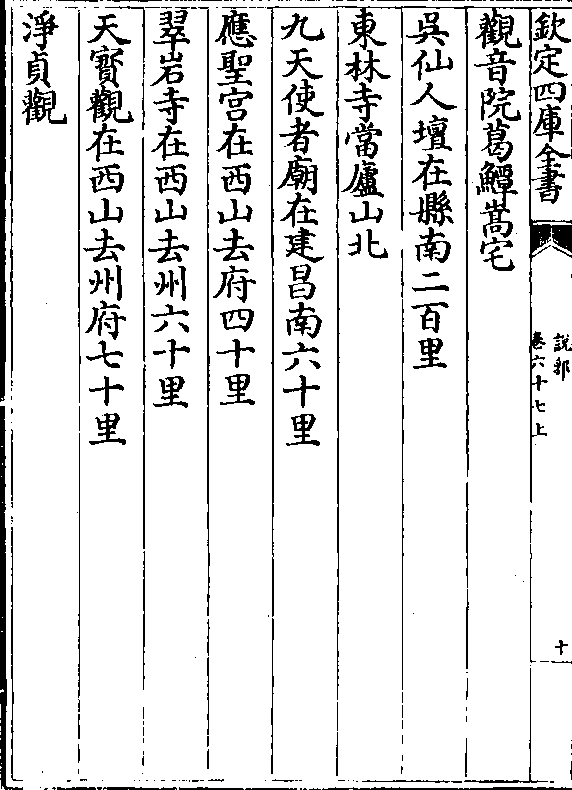 欽定四庫全書
説郛
卷六十七上
十
觀音院葛鱓嵩宅
吳仙人壇在縣南二百里
東林寺當廬山北
九天使者廟在建昌南六十里
應聖宮在西山去府四十里
翠岩寺在西山去州六十里
天寳觀在西山去州府七十里
淨貞觀